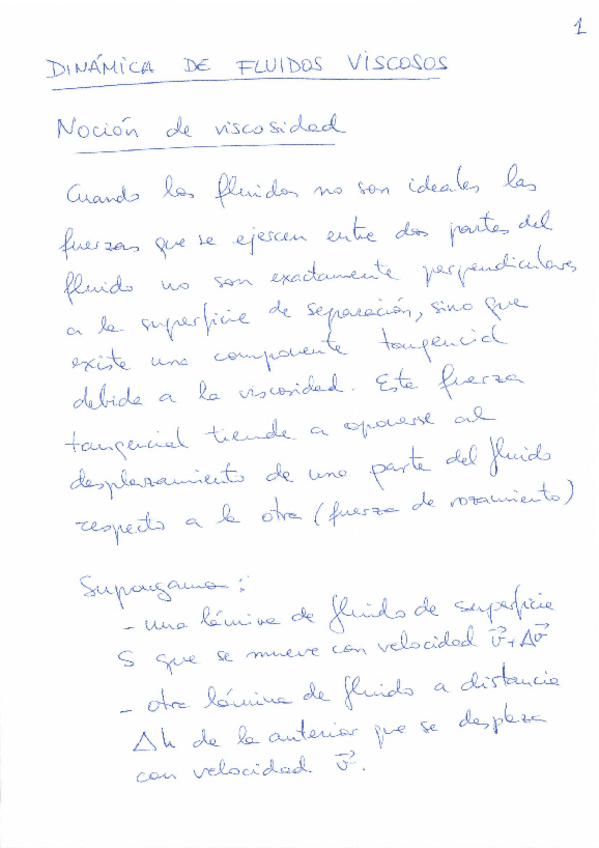 1
DINÁMICA DE FLUIDOS VISCOSOS
Noción de viscosidad
Cuando los fluidos no son ideales las
fuerzas que se ejercen entre dos partes del
fluido no son exactamente perpendiculares
a la superficie de separación, sino que
existe una componente tangencial
debida a la viscosidad. Esta fuerza
tangencial tiende a oponerse al
desplazamiento de una parte del fluido
respecto a la otra (fuerza de rozamiento)
Supongamos:
- una lámina de fluido de superficie
S que se mueve con velocidad v⃗+Δv⃗
- otra lámina de fluido a distancia
Δh de la anterior que se desplaza
con velocidad v⃗.